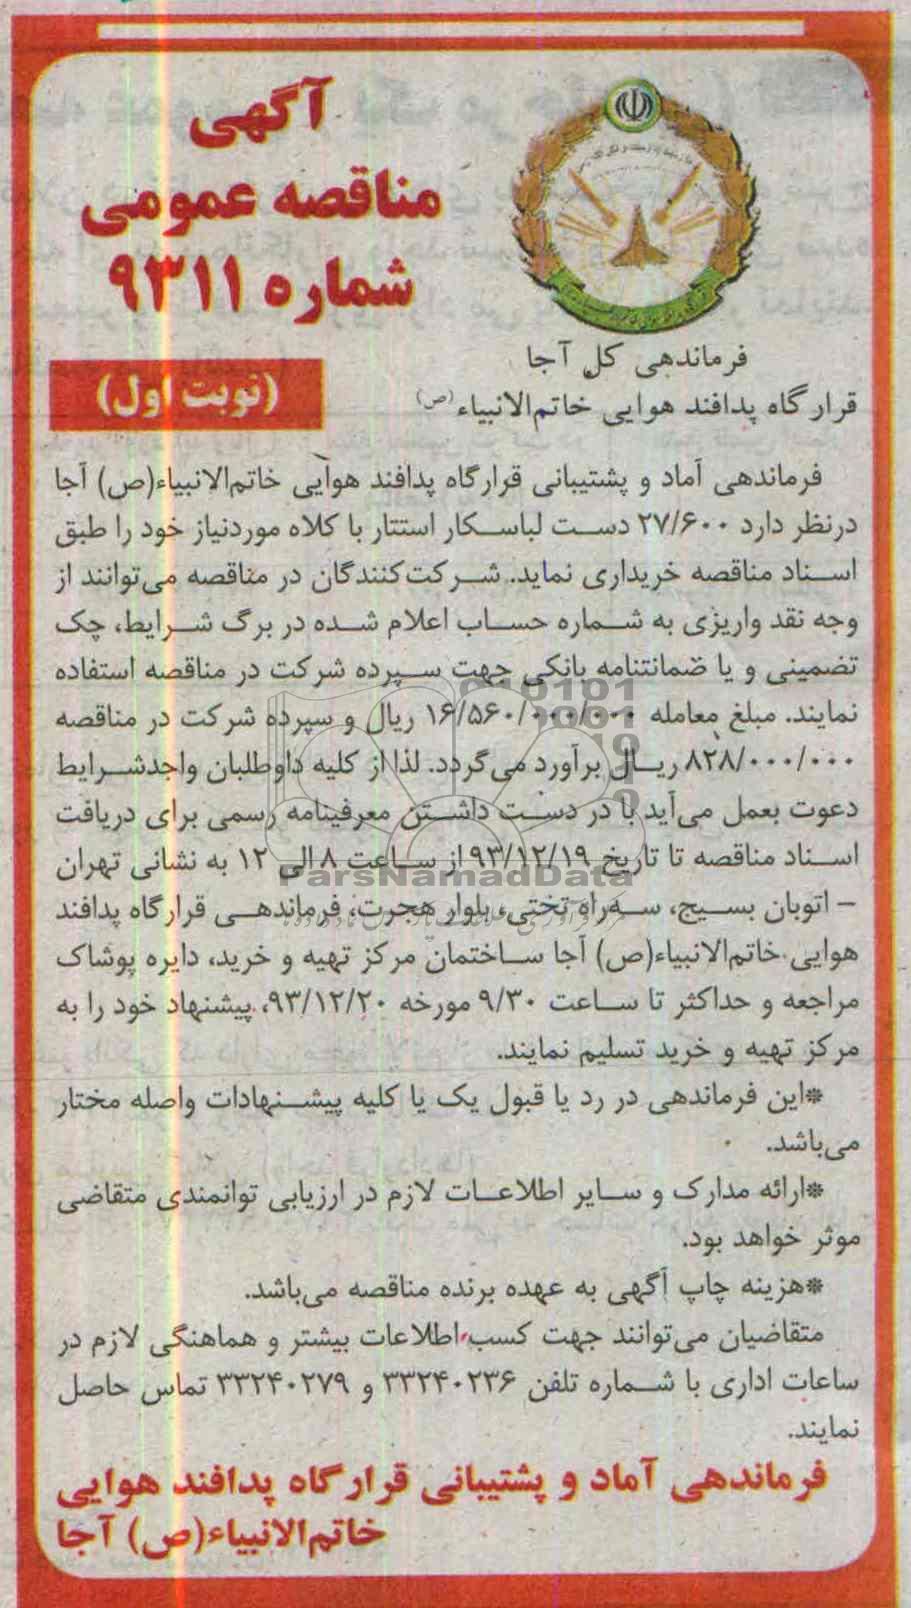 آگهی
مناقصه عمومی
شماره ۹۳۱۱
(نوبت اول)
فرماندهی کل آجا
قرارگاه پدافند هوایی خاتم‌الانبیاء (ص)
فرماندهی آماد و پشتیبانی قرارگاه پدافند هوایی خاتم‌الانبیاء(ص) آجا
درنظر دارد ۲۷/۶۰۰ دست لباسکار استتار با کلاه موردنیاز خود را طبق
اسناد مناقصه خریداری نماید. شرکت‌کنندگان در مناقصه می‌توانند از
وجه نقد واریزی به شماره حساب اعلام شده در برگ شرایط، چک
تضمینی و یا ضمانتنامه بانکی جهت سپرده شرکت در مناقصه استفاده
نمایند. مبلغ معامله ۱۶/۵۶۰/۰۰۰/۰۰۰ ریال و سپرده شرکت در مناقصه
۸۲۸/۰۰۰/۰۰۰ ریال برآورد می‌گردد. لذا از کلیه داوطلبان واجدشرایط
دعوت بعمل می‌آید با در دست داشتن معرفینامه رسمی برای دریافت
اسناد مناقصه تا تاریخ ۹۳/۱۲/۱۹ از ساعت ۸ الی ۱۲ به نشانی تهران
– اتوبان بسیج، سه‌راه تختی، بلوار هجرت، فرماندهی قرارگاه پدافند
هوایی خاتم‌الانبیاء(ص) آجا ساختمان مرکز تهیه و خرید، دایره پوشاک
مراجعه و حداکثر تا ساعت ۹/۳۰ مورخه ۹۳/۱۲/۲۰، پیشنهاد خود را به
مرکز تهیه و خرید تسلیم نمایند.
*این فرماندهی در رد یا قبول یک یا کلیه پیشنهادات واصله مختار
می‌باشد.
*ارائه مدارک و سایر اطلاعات لازم در ارزیابی توانمندی متقاضی
موثر خواهد بود.
*هزینه چاپ آگهی به عهده برنده مناقصه می‌باشد.
متقاضیان می‌توانند جهت کسب اطلاعات بیشتر و هماهنگی لازم در
ساعات اداری با شماره تلفن ۳۳۲۴۰۲۳۶ و ۳۳۲۴۰۲۷۹ تماس حاصل
نمایند.
فرماندهی آماد و پشتیبانی قرارگاه پدافند هوایی
خاتم‌الانبیاء(ص) آجا
ParsNamadData